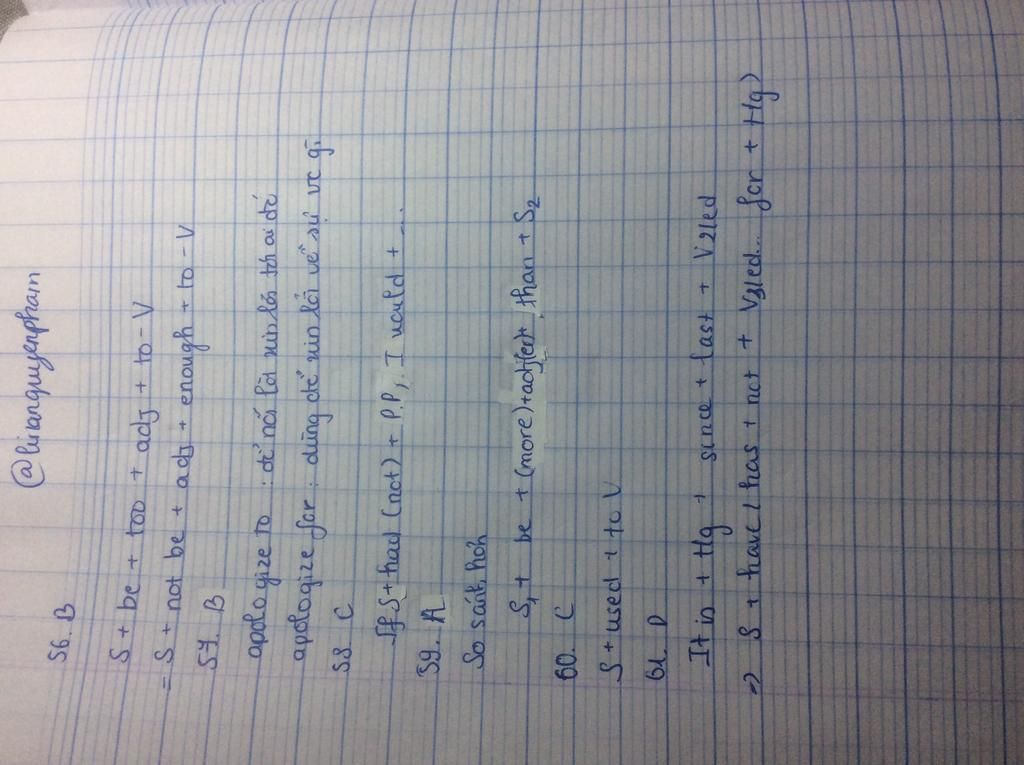 @liranquyenpham
56. B
S + be + too + adj + to - V
= S + not be + adj + enough + to - V
57. B
apologize to : để nói lời xin lỗi tới ai đó
apologize for : dùng để xin lỗi về sự vc gì
58. C
If S + had (not) + P.P, I would + ...
59. A
So sánh hơn
S1 + be + (more) + adj(er) + than + S2
60. C
S + used + to V
61. D
It is + tg + since + last + V2/ed
=> S + have / has + not + V3/ed... for + tg)